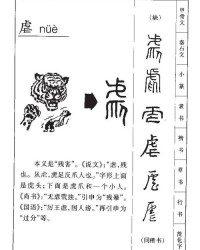 虐 nüè
本义是“残害”。《说文》:“虐,残
也。从虍,虎足反爪人也。”字形上面
是虎头;下面是虎爪和一个小人。
《尚书》:“无虐茕独。”引申为“残暴”。
《国语》:“厉王虐,国人谤。”再引申为
“过分”等。
(缺)
虐
(同楷书)
甲骨文
小篆
隶书
楷书
草书
行书
简化字